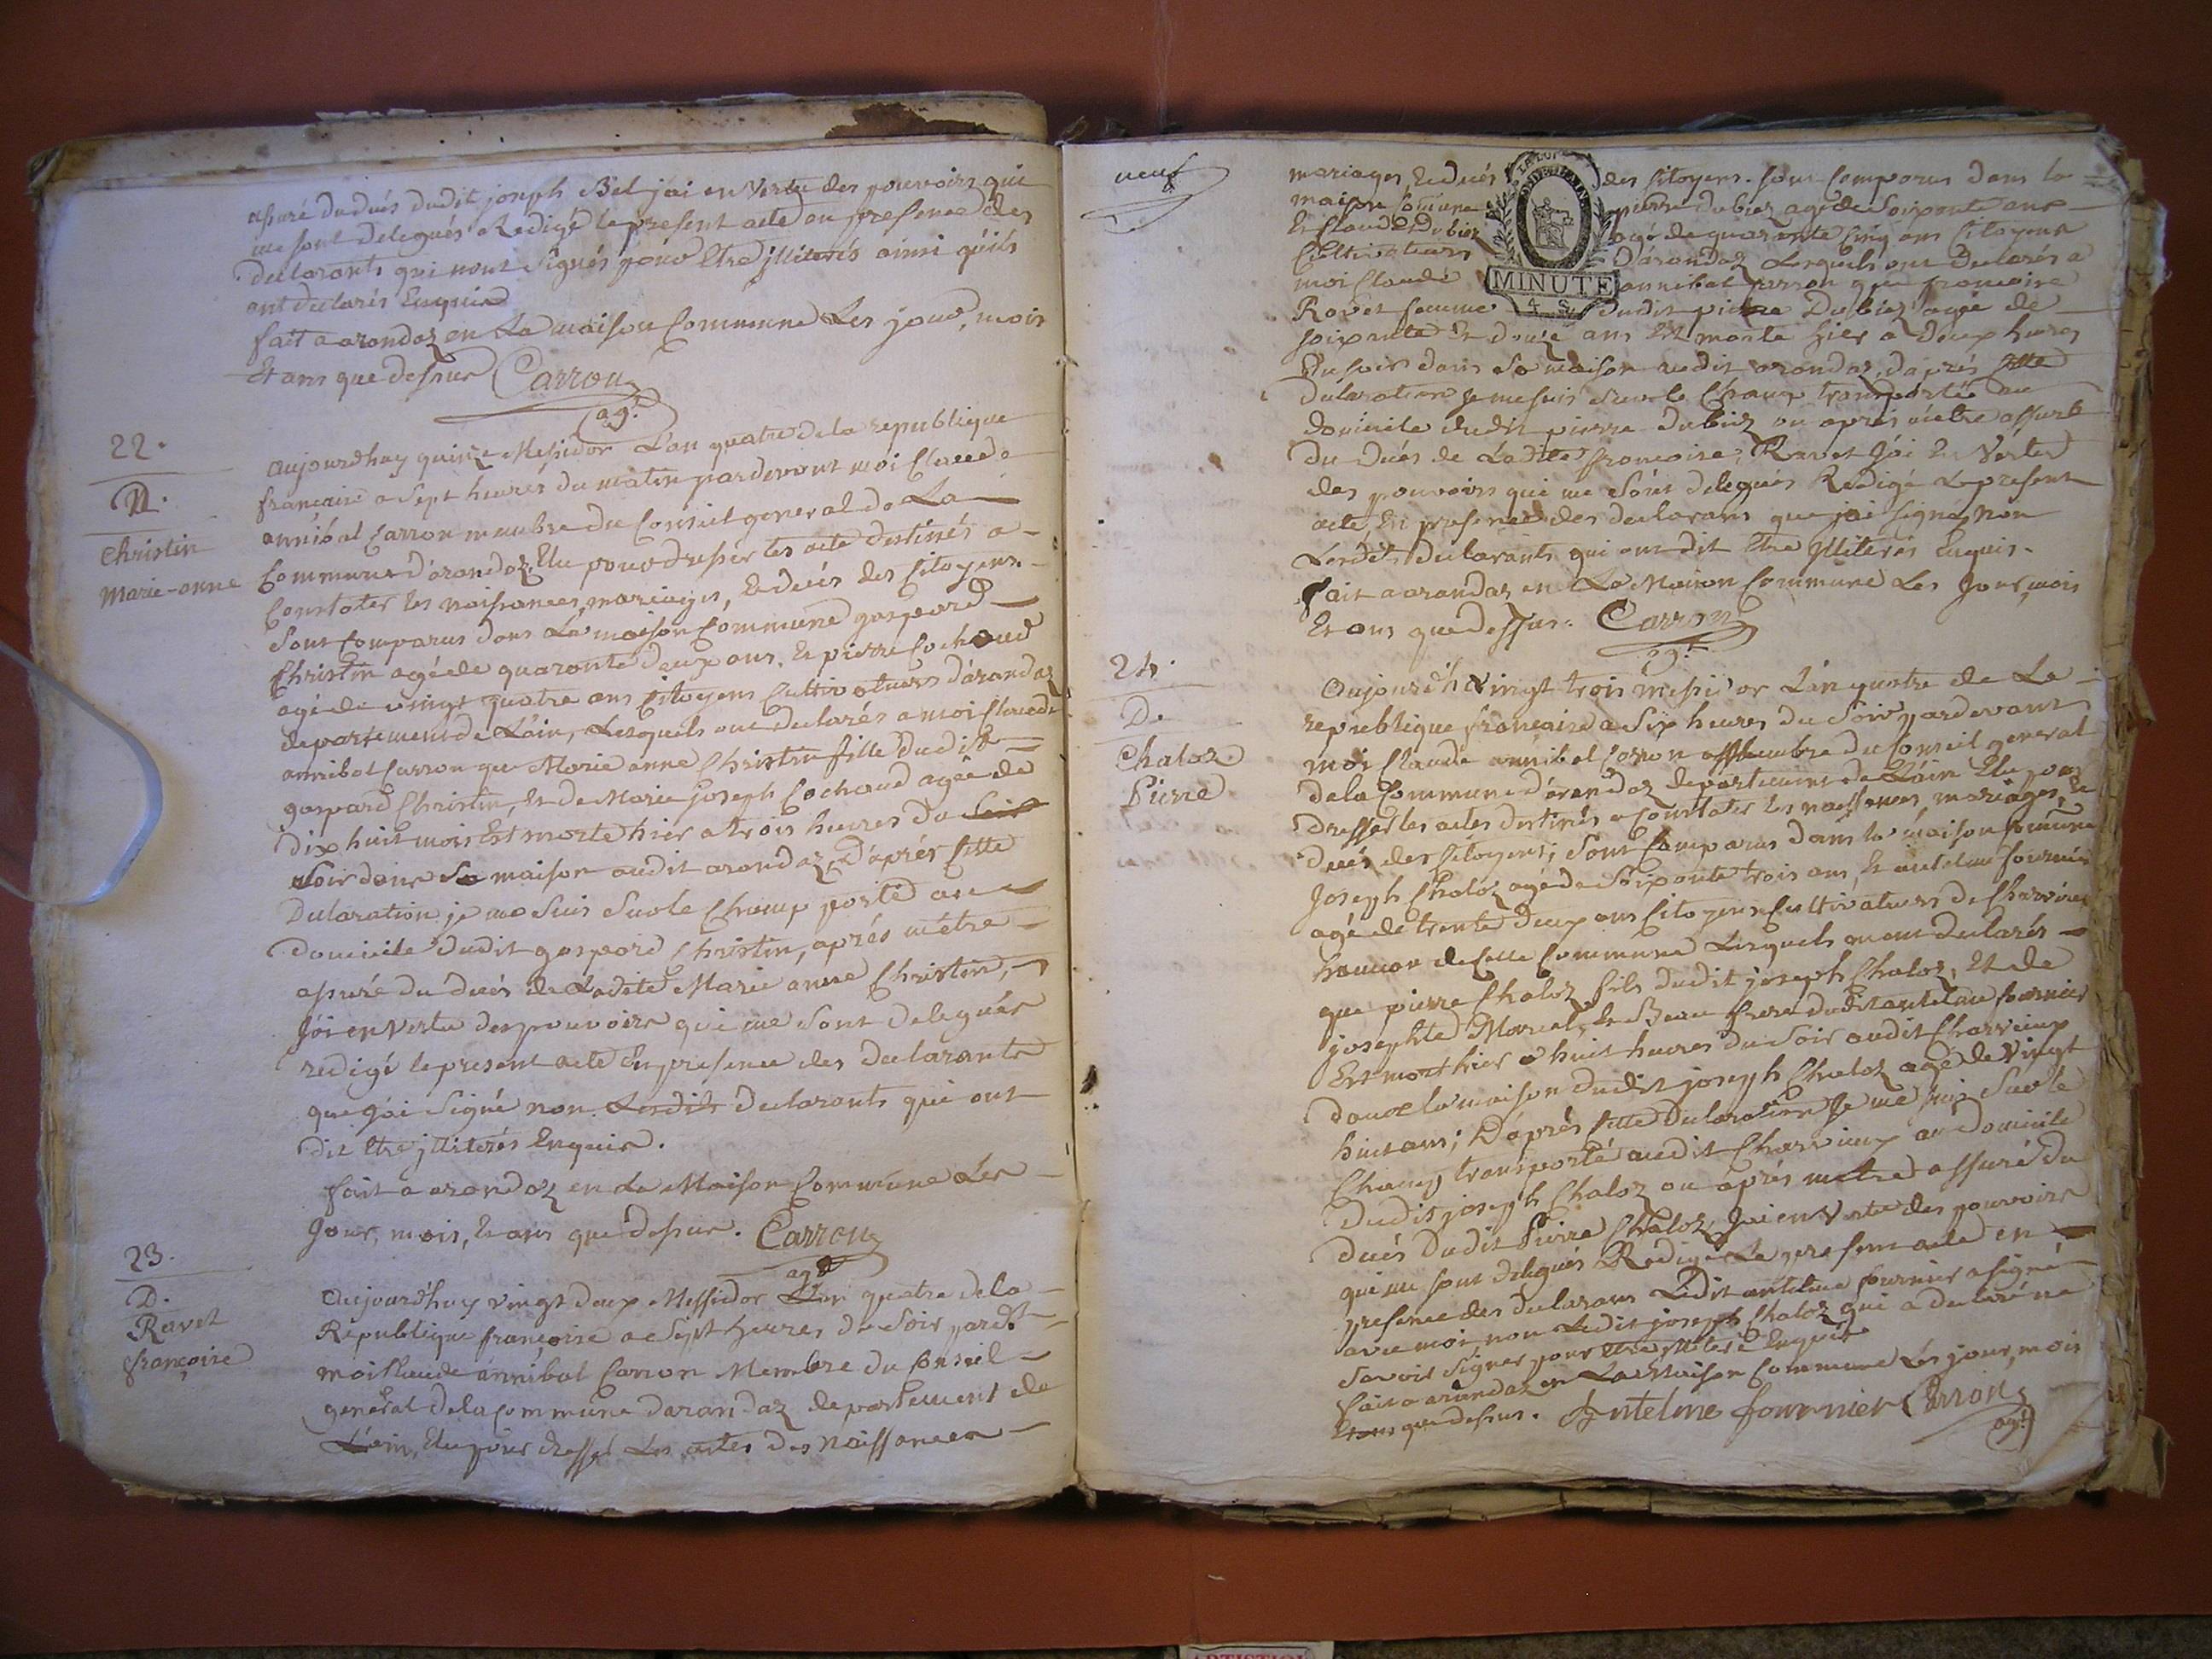 assuré du dués dudit joseph Bel jai en Vertu des pouvoirs qui
me sont delegués Redigé le present acte en presence des
declarants qui nont signés pour Etre jlliterés ainsi quils
ont declarés Enquis
fait a arandaz en La maison Commune Les jour, mois
Et ans que dessus Carron
agt
22.
D.
Christin
Marie-anne
aujourdhuy quinze Messidor L'an quatre de la republique
francaise a sept heures du matin pardevant moi Claude
annibal Carron membre du Conseil general de La
Commune d'arandaz, Elu pour dresser les acte destinés a
Constater les naissances, mariages, & dués des Citoyens.
Sont Comparus dans La maison Commune gaspard
Christin agé de quarante deux ans, Et pierre Cochaud
agé de vingt quatre ans Citoyens Cultivateurs d'arandaz
departement de L'ain, Lesquels ont declarés a moi Claude
annibal Carron que Marie anne Christin fille dudit
gaspard Christin, Et de Marie joseph Cochaud agée de
dix huit mois Est morte hier a trois heures du Soir
Soir dans Sa maison audit arandaz, D'aprés Cette
Declaration je me Suis Sur le Champ porté au
domicile dudit gaspard Christin, aprés m'étre
assuré du dués de Ladite Marie anne Christin,
J'ai en Vertu des pouvoirs qui me Sont delegués
redigé le present acte En presence des declarants
que j'ai signé non Lesdits declarants qui ont
dit Etre jlliterés Enquis.
fait a arandaz en La Maison Commune Les
Jour, mois, Et ans que dessus. Carron
agt
23.
D.
Ravet
françoise
Aujourdhuy vingt deux Messidor L'an quatre de la
Republique françoise a Sept heures du Soir pardt
moi Claude annibal Carron Membre du Conseil
general de la Commune darandaz departement de
L'ain, Elu pour dressé Les actes des Naissances
neuf
mariages, & dués des Citoyens. Sont Comparus dans la
maison Commune pierre dubiez agé de Soixante ans
Et Claude Dubiez agé de quarante Cinq ans Citoyens
Cultivateurs Darandaz Lesquels ont Declarés a
moi Claude annibal Carron que francoise
Ravet femme dudit pierre Dubiez agée de
LA LOI
MINUTE
4 S.
soixante Et douze ans Est morte hier a Deux heures
Du soir dans Sa maison audit arandaz, daprés Cette
Declaration je me suis Sur le Champ transportée au
domicile dudit pierre dubiez ou aprés m'etre assuré
du dués de Ladite françoise, Ravet J'ai En Vertu
des pouvoirs qui me sont delegués Redigé Le present
acte, En presence des declarans que jai signé non
Lesdits declarants qui ont dit Etre jlliterés Enquis.
fait a arandaz en La Maison Commune Les Jour, mois
Et ans que dessus. Carron
agt
24.
De
Chaloz
Pierre
Aujourd'hui vingt trois messidor L'an quatre de La
republique française a Six heures du Soir pardevant
moi Claude annibal Carron Membre du Conseil general
de la Commune d'arandaz departement de L'ain Elu pour
dresser les actes destinés a Constater les naissances, mariages, Et
dués des Citoyens; Sont Comparus dans la maison Commune
Joseph Chaloz agé de Soixante trois ans, Et antelme fournier
agé de trente Deux ans Citoyens Cultivateurs de Charvieux
hameau de Cette Commune Lesquels m'ont declarés
que pierre Chaloz, fils dudit joseph Chaloz, Et de
josephte Marcel, Et Beau frere dudit antelme fournier
Est mort hier a huit heures du Soir audit Charvieux
dans la maison dudit joseph Chaloz agé de Vingt
huit ans; D'aprés Cette Declaration je me suis Sur le
Champ transporté audit Charvieux au Domicile
dudit joseph Chaloz ou aprés métre assuré du
dués dudit Pierre Chaloz, Jai en Vertu des pouvoirs
qui me sont delegués Redigé Le present acte en
presence des declarans Ledit antelme fournier a signé
avec moi, non Ledit joseph Chaloz qui a declaré ne
savoir signer pour etre jlliteré Enquis
fait a arandaz en La Maison Commune Les jour, mois
Et ans que dessus. Antelme fournier Carron
agt